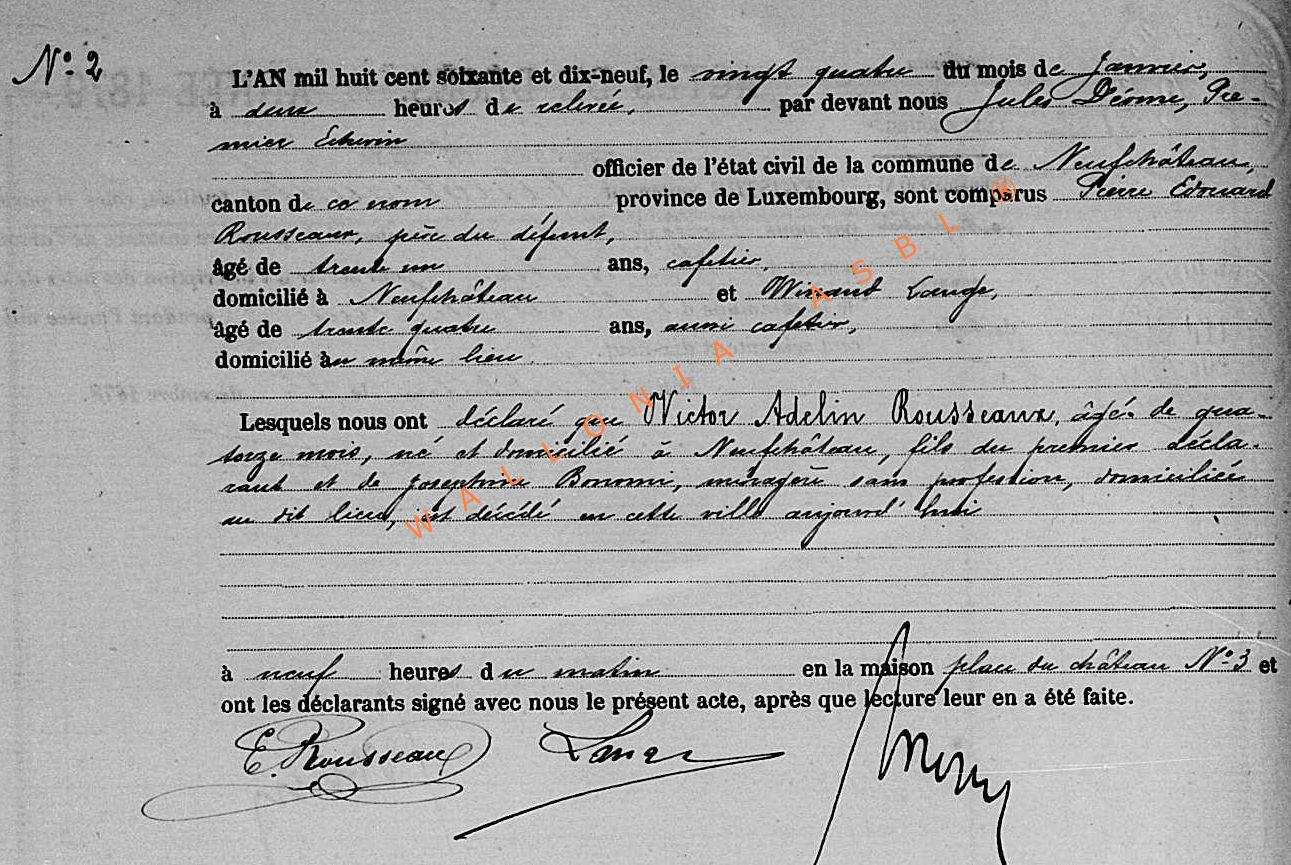 N° 2
L'AN mil huit cent soixante et dix-neuf, le vingt quatre du mois de Janvier,
à deux heures de relevée, par devant nous Jules Dérome, Pre-
mier Echevin
officier de l'état civil de la commune de Neufchâteau,
canton de ce nom province de Luxembourg, sont comparus Pierre Edouard
Rousseaux, père du défunt,
âgé de trente un ans, cafetier,
domicilié à Neufchâteau et Winand Lange,
âgé de trente quatre ans, aussi cafetier,
domicilié au même lieu.
Lesquels nous ont déclaré que Victor Adelin Rousseaux, âgé de qua-
torze mois, né et domicilié à Neufchâteau, fils du premier décla-
rant et de Josephine Bonomi, ménagère sans profession, domiciliée
au dit lieu, est décédé en cette ville aujourd'hui
à neuf heures du matin en la maison place du château N° 3 et
ont les déclarants signé avec nous le présent acte, après que lecture leur en a été faite.
E. Rousseaux
WALLONIA ASBL ®